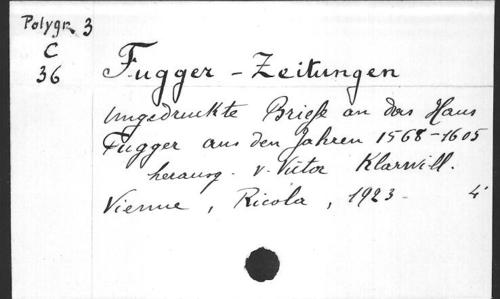 Polygr. 3
C
36
Fugger - Zeitungen
Ungedruckte Briefe an das Haus
Fugger aus den Jahren 1568-1605
herausg. v. Victor Klarwill.
Vienne, Ricola, 1923. 4°